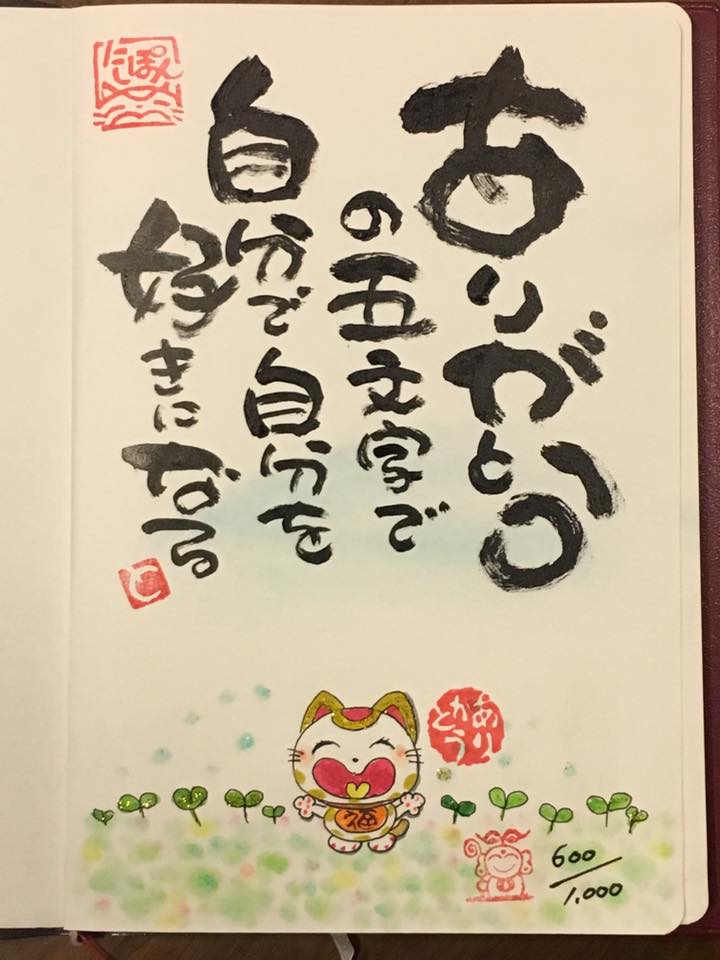 ありがとう
の五文字で
自分で自分を
好きになる
ありがとう
福
600
1,000